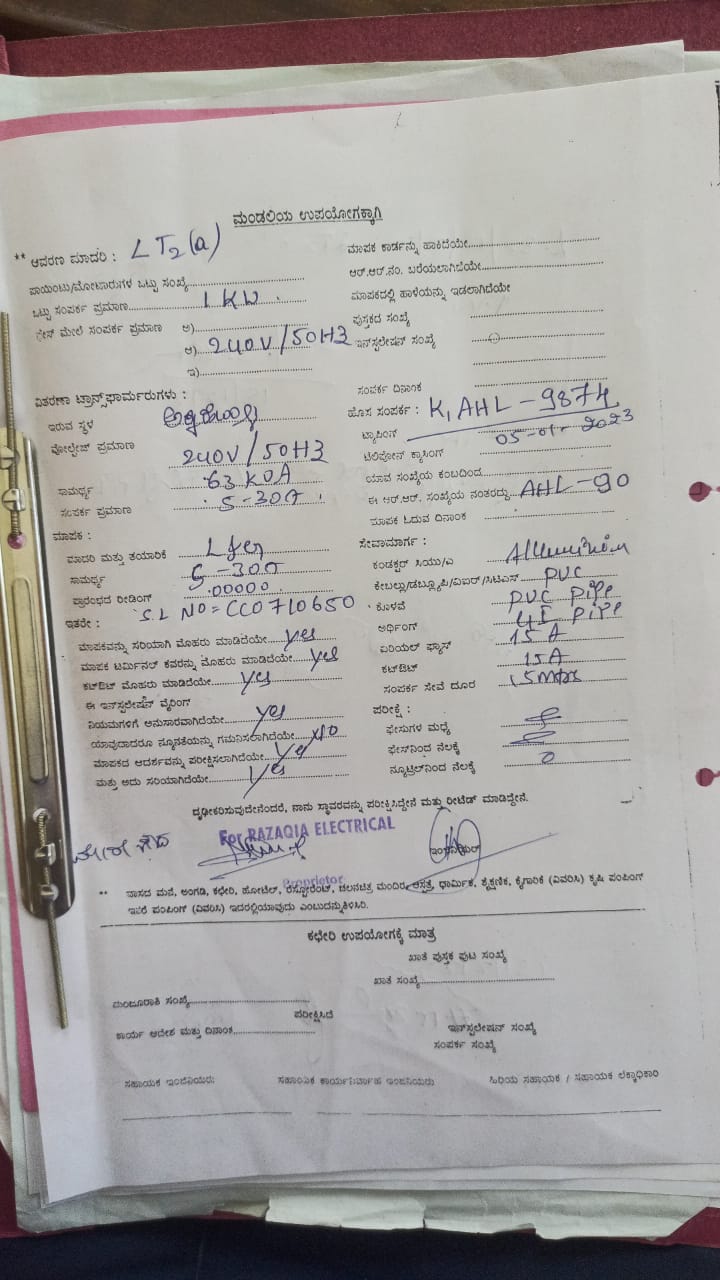 ಮಂಡಲಿಯ ಉಪಯೋಗಕ್ಕಾಗಿ
** ಆವರಣ ಮಾದರಿ : LT2(a)
ಪಾಯಿಂಟು/ಮೋಟಾರುಗಳ ಒಟ್ಟು ಸಂಖ್ಯೆ
ಒಟ್ಟು ಸಂಪರ್ಕ ಪ್ರಮಾಣ 1 KW
ಫೇಸ್ ಮೇಲೆ ಸಂಪರ್ಕ ಪ್ರಮಾಣ ಅ)
ಆ) 240V/50HZ
ಇ)
ವಿತರಣಾ ಟ್ರಾನ್ಸ್‌ಫಾರ್ಮರುಗಳು :
ಇರುವ ಸ್ಥಳ
ವೋಲ್ಟೇಜ್ ಪ್ರಮಾಣ 240V/50HZ
ಸಾಮರ್ಥ್ಯ 63 KVA
ಸಂಪರ್ಕ ಪ್ರಮಾಣ 5-30A
ಮಾಪಕ :
ಮಾದರಿ ಮತ್ತು ತಯಾರಿಕೆ
ಸಾಮರ್ಥ್ಯ 5-30A
ಪ್ರಾರಂಭದ ರೀಡಿಂಗ್ 00000
ಇತರೇ : S.L NO = CC0710650
ಮಾಪಕವನ್ನು ಸರಿಯಾಗಿ ಮೊಹರು ಮಾಡಿದೆಯೇ yes
ಮಾಪಕ ಟರ್ಮಿನಲ್ ಕವರನ್ನು ಮೊಹರು ಮಾಡಿದೆಯೇ yes
ಕಟ್‌ಔಟ್ ಮೊಹರು ಮಾಡಿದೆಯೇ yes
ಈ ಇನ್‌ಸ್ಟಲೇಷನ್ ವೈರಿಂಗ್
ನಿಯಮಗಳಿಗೆ ಅನುಸಾರವಾಗಿದೆಯೇ yes
ಯಾವುದಾದರೂ ನ್ಯೂನತೆಯನ್ನು ಗಮನಿಸಲಾಗಿದೆಯೇ NO
ಮಾಪಕದ ಆದರ್ಶವನ್ನು ಪರೀಕ್ಷಿಸಲಾಗಿದೆಯೇ yes
ಮತ್ತು ಅದು ಸರಿಯಾಗಿದೆಯೇ yes
ಮಾಪಕ ಕಾರ್ಡನ್ನು ಹಾಕಿದೆಯೇ
ಆರ್.ಆರ್.ನಂ. ಬರೆಯಲಾಗಿದೆಯೇ
ಮಾಪಕದಲ್ಲಿ ಹಾಳೆಯನ್ನು ಇಡಲಾಗಿದೆಯೇ
ಪುಸ್ತಕದ ಸಂಖ್ಯೆ
ಇನ್‌ಸ್ಟಲೇಷನ್ ಸಂಖ್ಯೆ
ಸಂಪರ್ಕ ದಿನಾಂಕ
ಹೊಸ ಸಂಪರ್ಕ : K, AHL-9874
ಟ್ಯಾಪಿಂಗ್ 2023
ಟೆಲಿಫೋನ್ ಕ್ರಾಸಿಂಗ್
ಯಾವ ಸಂಖ್ಯೆಯ ಕಂಬದಿಂದ
ಈ ಆರ್.ಆರ್. ಸಂಖ್ಯೆಯ ನಂತರದ್ದು AHL-90
ಮಾಪಕ ಓದುವ ದಿನಾಂಕ
ಸೇವಾಮಾರ್ಗ :
ಕಂಡಕ್ಟರ್ ಸಿಯು/ಎ
ಕೇಬಲ್ಲು/ಡಬ್ಲ್ಯೂಪಿ/ಐಆರ್/ಸಿಟಿಎಸ್ PVC
ಕೊಳವೆ PVC Pipe
ಅರ್ಥಿಂಗ್ GI Pipe
ಏರಿಯಲ್ ಫ್ಯೂಸ್ 15A
ಕಟ್‌ಔಟ್ 15A
ಸಂಪರ್ಕ ಸೇವೆ ದೂರ
ಪರೀಕ್ಷೆ :
ಫೇಸುಗಳ ಮಧ್ಯೆ
ಫೇಸ್‌ನಿಂದ ನೆಲಕ್ಕೆ
ನ್ಯೂಟ್ರಲ್‌ನಿಂದ ನೆಲಕ್ಕೆ
ದೃಢೀಕರಿಸುವುದೇನೆಂದರೆ, ನಾನು ಸ್ಥಾವರವನ್ನು ಪರೀಕ್ಷಿಸಿದ್ದೇನೆ ಮತ್ತು ರೀಟೆಡ್ ಮಾಡಿದ್ದೇನೆ.
For RAZAQIA ELECTRICAL
Proprietor
** ವಾಸದ ಮನೆ, ಅಂಗಡಿ, ಕಛೇರಿ, ಹೋಟೆಲ್, ರೆಸ್ಟೋರೆಂಟ್, ಚಲನಚಿತ್ರ ಮಂದಿರ, ಆಸ್ಪತ್ರೆ, ಧಾರ್ಮಿಕ, ಶೈಕ್ಷಣಿಕ, ಕೈಗಾರಿಕೆ (ವಿವರಿಸಿ) ಕೃಷಿ ಪಂಪಿಂಗ್
ಇತರೆ ಪಂಪಿಂಗ್ (ವಿವರಿಸಿ) ಇದರಲ್ಲಿಯಾವುದು ಎಂಬುದನ್ನು ತಿಳಿಸಿರಿ.
ಕಛೇರಿ ಉಪಯೋಗಕ್ಕೆ ಮಾತ್ರ
ಖಾತೆ ಪುಸ್ತಕ ಪುಟ ಸಂಖ್ಯೆ
ಖಾತೆ ಸಂಖ್ಯೆ
ಮಂಜೂರಾತಿ ಸಂಖ್ಯೆ
ಪರೀಕ್ಷಿಸಿದೆ
ಕಾರ್ಯ ಆದೇಶ ಮತ್ತು ದಿನಾಂಕ
ಇನ್‌ಸ್ಟಲೇಷನ್ ಸಂಖ್ಯೆ
ಸಂಪರ್ಕ ಸಂಖ್ಯೆ
ಸಹಾಯಕ ಇಂಜಿನಿಯರು
ಸಹಾಯಕ ಕಾರ್ಯನಿರ್ವಾಹಕ ಇಂಜನಿಯರು
ಹಿರಿಯ ಸಹಾಯಕ / ಸಹಾಯಕ ಲೆಕ್ಕಾಧಿಕಾರಿ